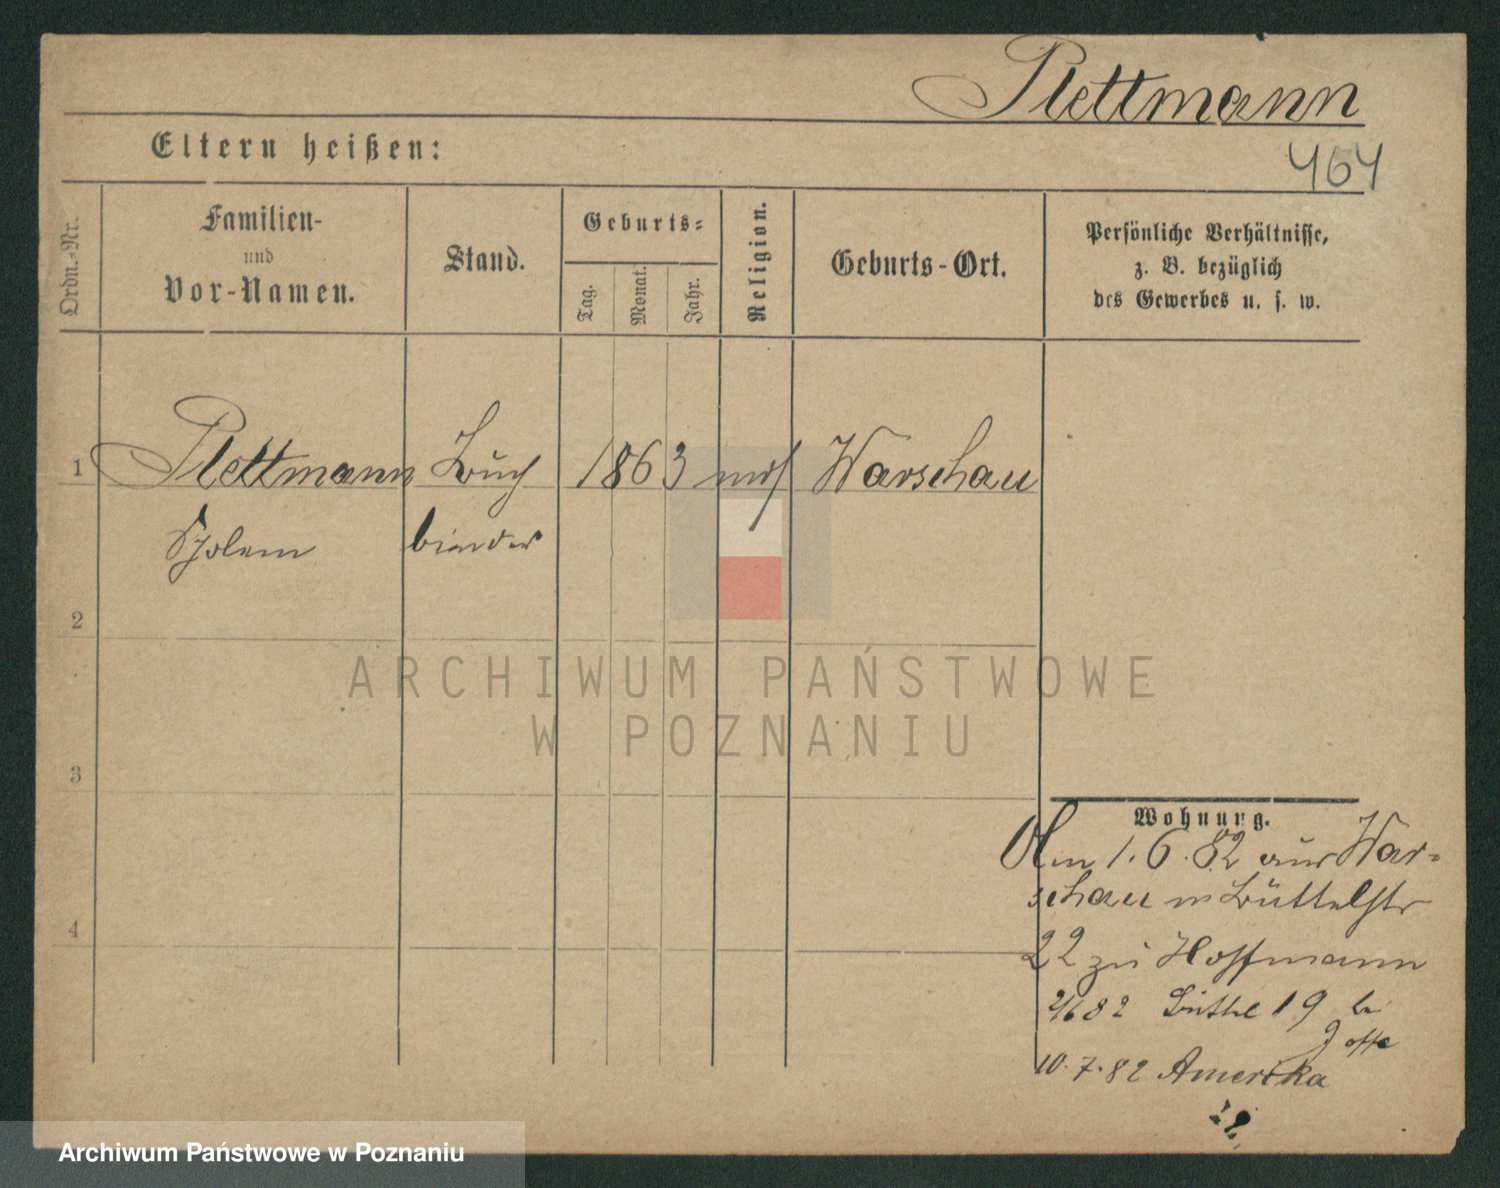 Plettmann
464
Eltern heißen:
Ordn.-Nr.
Familien-
und
Vor-Namen.
Stand.
Geburts-
Tag.
Monat.
Jahr.
Religion.
Geburts-Ort.
Persönliche Verhältnisse,
z. B. bezüglich
des Gewerbes u. s. w.
1 Plettmann Buch 1863 mos Warschau
Scholem binder
2
3
4
Wohnung.
Am 1.6.82 aus War-
schau in Büttelstr
22 zu Hoffmann
2/6 82 Büttel 19 bei
10.7.82 Amerika
ARCHIWUM PAŃSTWOWE
W POZNANIU
Archiwum Państwowe w Poznaniu